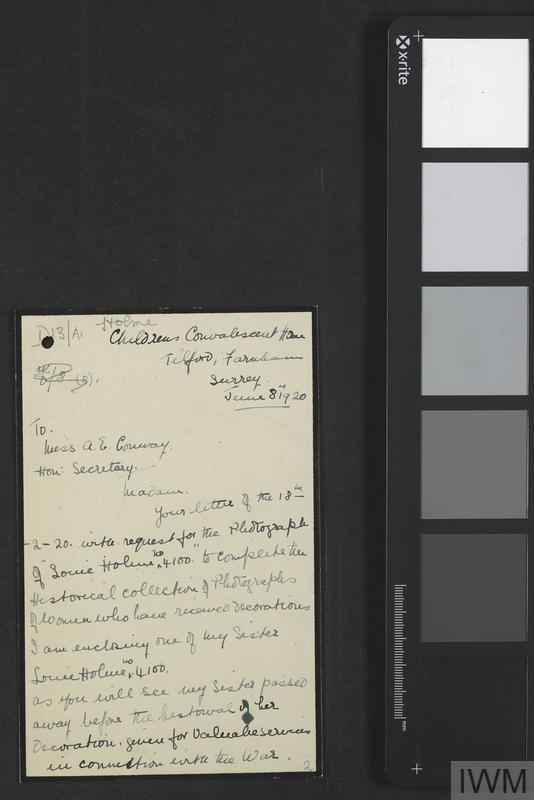 D 13/A1 Holme
Childrens Convalescent Home
Tilford, Farnham
Surrey.
June 8th 1920
To.
Miss A.E. Conway.
Hon: Secretary.
Madam.
Your letter of the 18th
-2-20. with request for the Photograph
of "Louie Holme no 4100." to complete the
Historical collection of Photographs
of Women who have received decorations
I am enclosing one of my Sister
Louie Holme no 4100.
as you will see my Sister passed
away before the bestowal of her
Decoration. given for Valuable services
in connection with the War.
2
x-rite
mm
IWM